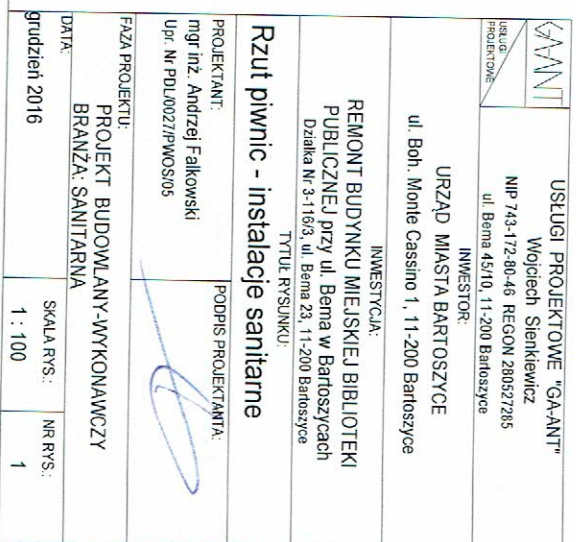 GA-ANT
USŁUGI
PROJEKTOWE
USŁUGI PROJEKTOWE "GA-ANT"
Wojciech Sienkiewicz
NIP 743-172-80-46 REGON 280527285
ul. Bema 45/10, 11-200 Bartoszyce
INWESTOR:
URZĄD MIASTA BARTOSZYCE
ul. Boh. Monte Cassino 1, 11-200 Bartoszyce
INWESTYCJA:
REMONT BUDYNKU MIEJSKIEJ BIBLIOTEKI
PUBLICZNEJ przy ul. Bema w Bartoszycach
Działka Nr 3-116/3, ul. Bema 23, 11-200 Bartoszyce
TYTUŁ RYSUNKU:
Rzut piwnic - instalacje sanitarne
PROJEKTANT:
mgr inż. Andrzej Falkowski
Upr. Nr PDL/0027/PWOS/05
PODPIS PROJEKTANTA:
FAZA PROJEKTU:
PROJEKT BUDOWLANY-WYKONAWCZY
BRANŻA: SANITARNA
DATA:
grudzień 2016
SKALA RYS.:
1 : 100
NR RYS.:
1